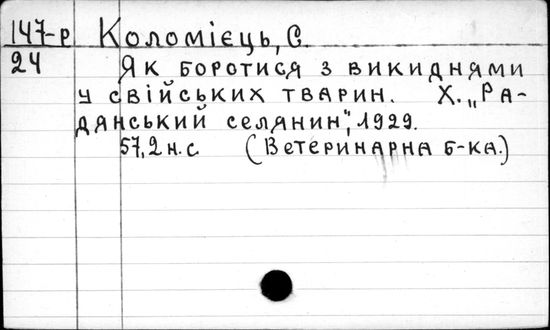 147-р Коломієць, С.
24 Як боротися з викиднями
у свійських тварин. Х. „Ра-
дянський селянин", 1929.
57,2 н. с. (Ветеринарна б-ка.)